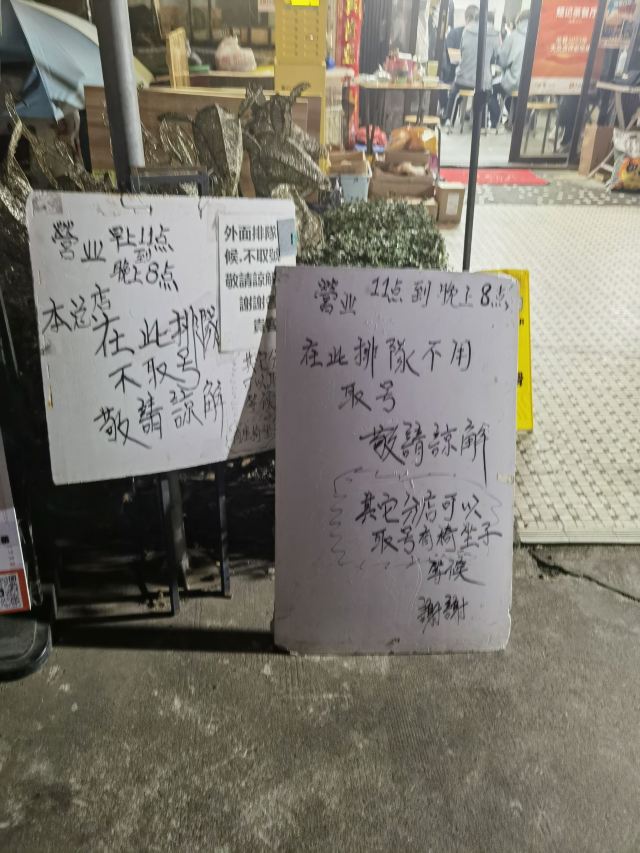 營业 早上11点
到
晚上8点
本总店
在此排隊
不取号
敬請諒解
外面排隊
候,不取號
敬請諒解
謝謝
營业 11点到晚上8点
在此排隊不用
取号
敬請諒解
其它分店可以
取号有椅坐子
等候
謝謝